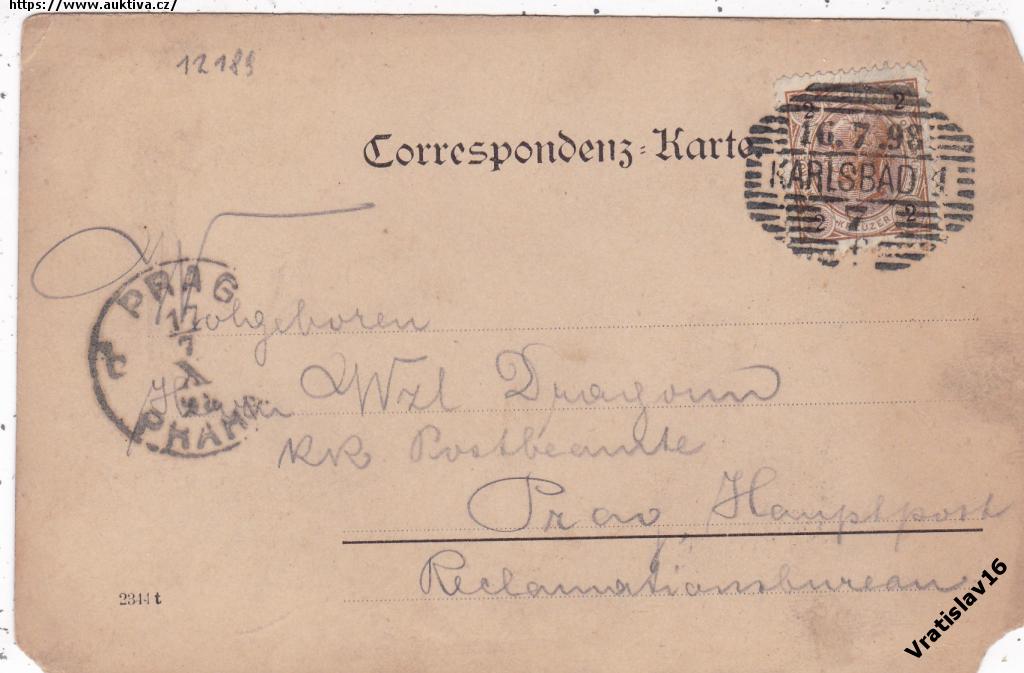 https://www.auktiva.cz/
12189
Correspondenz-Karte.
2 2
16.7.98
KARLSBAD 1
7
2 KREUZER 2
PRAG
17
7
PRAHA
Wolgeboren
Herrn Wzl Dragoun
KK Postbeamte
Prag, Hauptpost
Reclamationsbureau
2344 t
Vratislav16